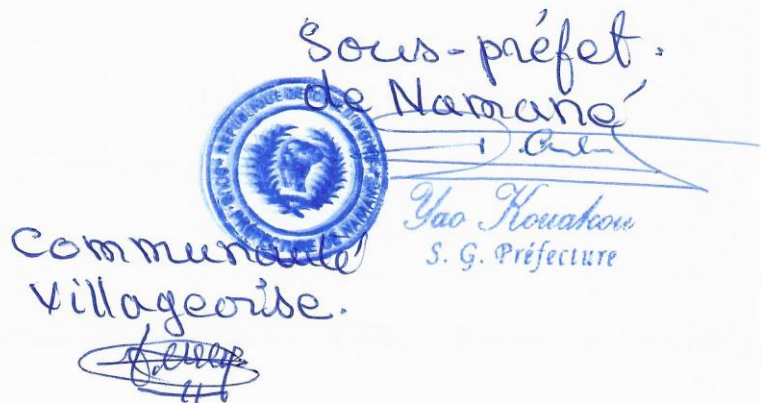 Sous-préfet.
de Namané
RÉPUBLIQUE DE CÔTE D'IVOIRE
SOUS-PRÉFECTURE DE NAMANE
Yao Kouakou
S. G. Préfecture
Communauté
Villageoise.